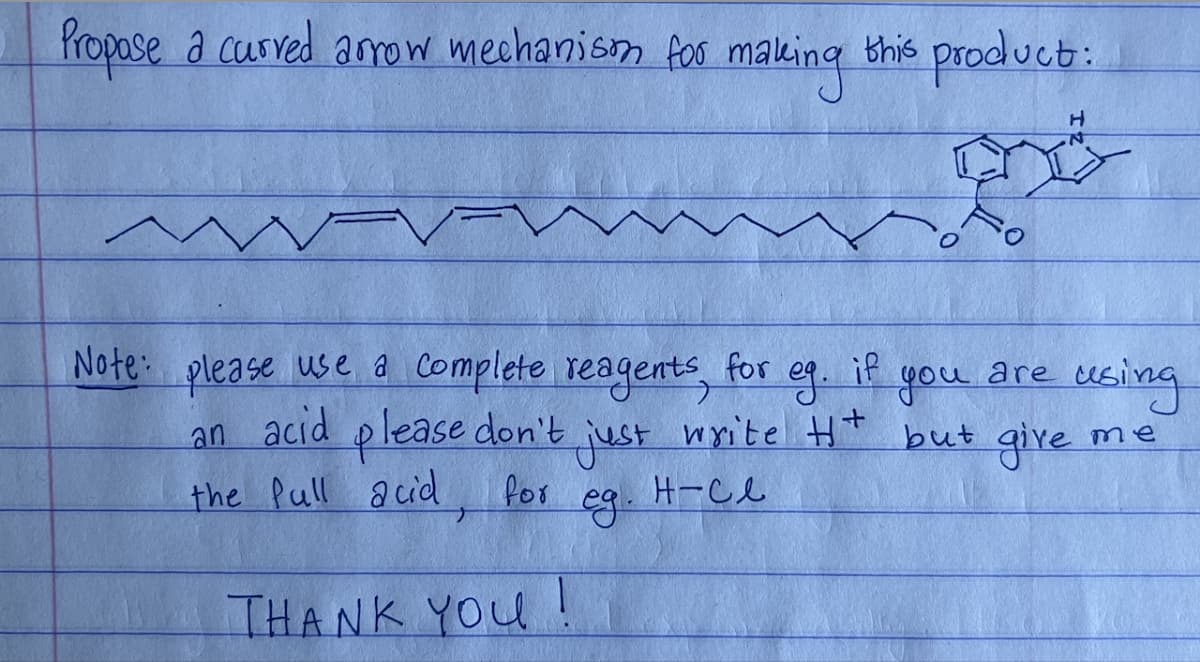 Propose a curved arrow mechanism for making this product:
H
N
O
O
Note: please use a complete reagents, for eg. if you are using
an acid please don't just write H+ but give me
the full acid, for eg. H-Cl
THANK YOU!